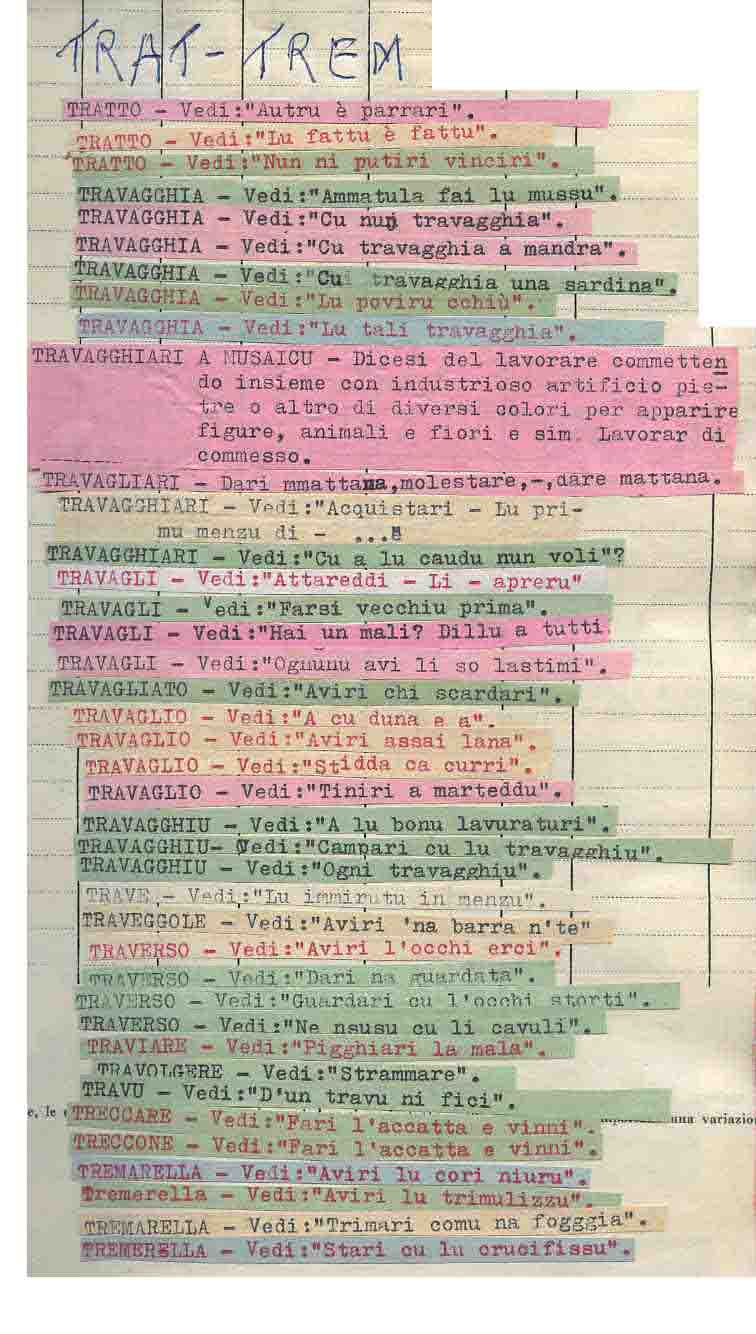 TRAT-TREM
TRATTO - Vedi:"Autru è parrari".
TRATTO - Vedi:"Lu fattu è fattu".
TRATTO - Vedi:"Nun ni putiri vinciri".
TRAVAGGHIA - Vedi:"Ammatula fai lu mussu".
TRAVAGGHIA - Vedi:"Cu nun travagghia".
TRAVAGGHIA - Vedi:"Cu travagghia a mandra".
TRAVAGGHIA - Vedi:"Cui travagghia una sardina".
TRAVAGGHIA - Vedi:"Lu poviru cchiù".
TRAVAGGHIA - Vedi:"Lu tali travagghia".
TRAVAGGHIARI A MUSAICU - Dicesi del lavorare commetten
do insieme con industrioso artificio pie-
tre o altro di diversi colori per apparire
figure, animali e fiori e sim. Lavorar di
commesso.
TRAVAGLIARI - Dari mmattana,molestare,-,dare mattana.
TRAVAGGHIARI - Vedi:"Acquistari - Lu pri-
mu menzu di - ..."
TRAVAGGHIARI - Vedi:"Cu a lu caudu nun voli"?
TRAVAGLI - Vedi:"Attareddi - Li - apreru"
TRAVAGLI - Vedi:"Farsi vecchiu prima".
TRAVAGLI - Vedi:"Hai un mali? Dillu a tutti
TRAVAGLI - Vedi:"Ognunu avi li so lastimi".
TRAVAGLIATO - Vedi:"Aviri chi scardari".
TRAVAGLIO - Vedi:"A cu duna e a".
TRAVAGLIO - Vedi:"Aviri assai lana".
TRAVAGLIO - Vedi:"Stidda ca curri".
TRAVAGLIO - Vedi:"Tiniri a marteddu".
TRAVAGGHIU - Vedi:"A lu bonu lavuraturi".
TRAVAGGHIU- Vedi:"Campari cu lu travagghiu".
TRAVAGGHIU - Vedi:"Ogni travagghiu".
TRAVE - Vedi:"Lu immirutu in menzu".
TRAVEGGOLE - Vedi:"Aviri 'na barra n'tè"
TRAVERSO - Vedi:"Aviri l'occhi erci".
TRAVERSO - Vedi:"Dari na guardata".
TRAVERSO - Vedi:"Guardari cu l'occhi storti".
TRAVERSO - Vedi:"Ne nsusu cu li cavuli".
TRAVIARE - Vedi:"Pigghiari la mala".
TRAVOLGERE - Vedi:"Strammare".
TRAVU - Vedi:"D'un travu ni fici".
e, le
TRECCARE - Vedi:"Fari l'accatta e vinni".
una variazio
TRECCONE - Vedi:"Fari l'accatta e vinni".
TREMARELLA - Vedi:"Aviri lu cori niuru".
Tremerella - Vedi:"Aviri lu trimulizzu".
TREMARELLA - Vedi:"Trimari comu na fogggia".
TREMERELLA - Vedi:"Stari cu lu crucifissu".